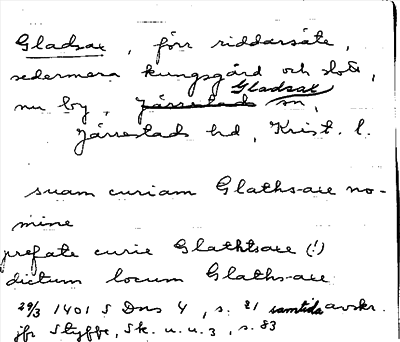 Gladsax, förr riddarsäte,
sedermera kungsgård och slott,
nu by, Järrestads Gladsax sn,
Järrestads hd, Krist. l.
suam curiam Glaths-axe no-
mine
prefate curie Glathtsaxe (!)
dictum locum Glaths-axe
29/3 1401 SDns 4, s. 21 samtida avskr.
jfr Styffe, Sk. u. u. 3, s. 83